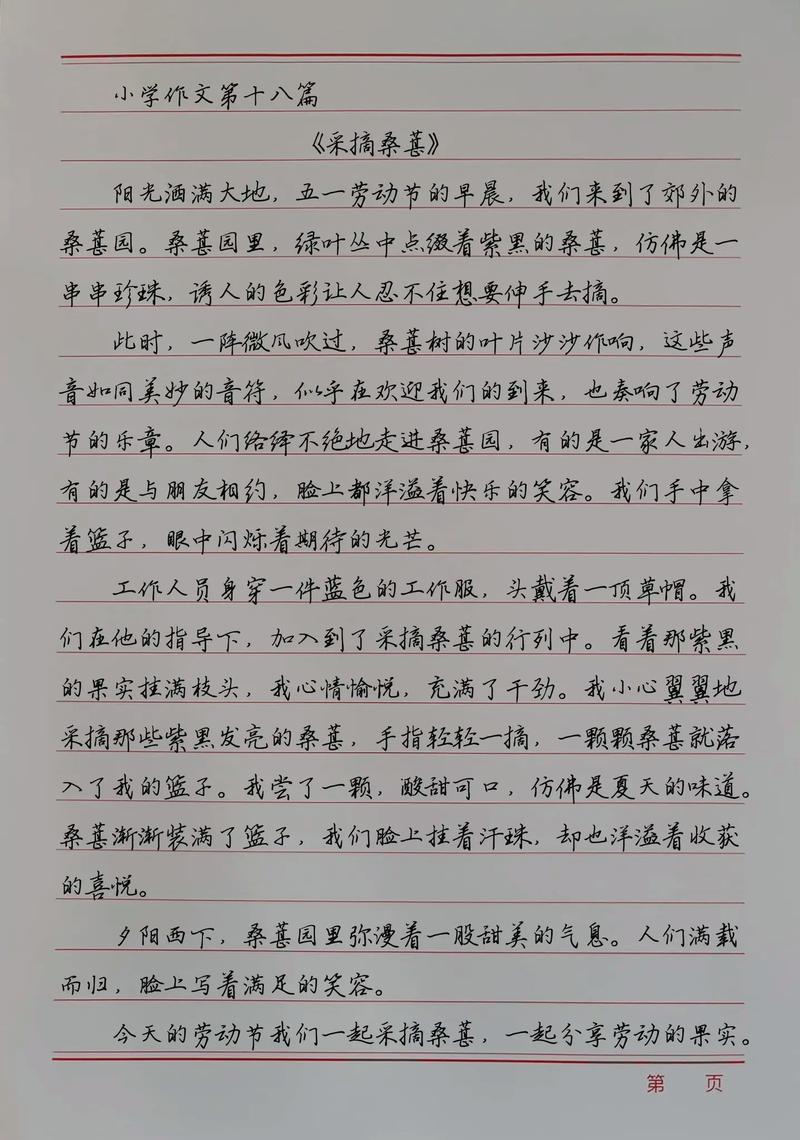 小学作文第十八篇
《采摘桑葚》
阳光洒满大地，五一劳动节的早晨，我们来到了郊外的
桑葚园。桑葚园里，绿叶丛中点缀着紫黑的桑葚，仿佛是一
串串珍珠，诱人的色彩让人忍不住想要伸手去摘。
此时，一阵微风吹过，桑葚树的叶片沙沙作响，这些声
音如同美妙的音符，似乎在欢迎我们的到来，也奏响了劳动
节的乐章。人们络绎不绝地走进桑葚园，有的是一家人出游，
有的是与朋友相约，脸上都洋溢着快乐的笑容。我们手中拿
着篮子，眼中闪烁着期待的光芒。
工作人员身穿一件蓝色的工作服，头戴着一顶草帽。我
们在他的指导下，加入到了采摘桑葚的行列中。看着那紫黑
的果实挂满枝头，我心情愉悦，充满了干劲。我小心翼翼地
采摘那些紫黑发亮的桑葚，手指轻轻一摘，一颗颗桑葚就落
入了我的篮子。我尝了一颗，酸甜可口，仿佛是夏天的味道。
桑葚渐渐装满了篮子，我们脸上挂着汗珠，却也洋溢着收获
的喜悦。
夕阳西下，桑葚园里弥漫着一股甜美的气息。人们满载
而归，脸上写着满足的笑容。
今天的劳动节我们一起采摘桑葚，一起分享劳动的果实。
第 页